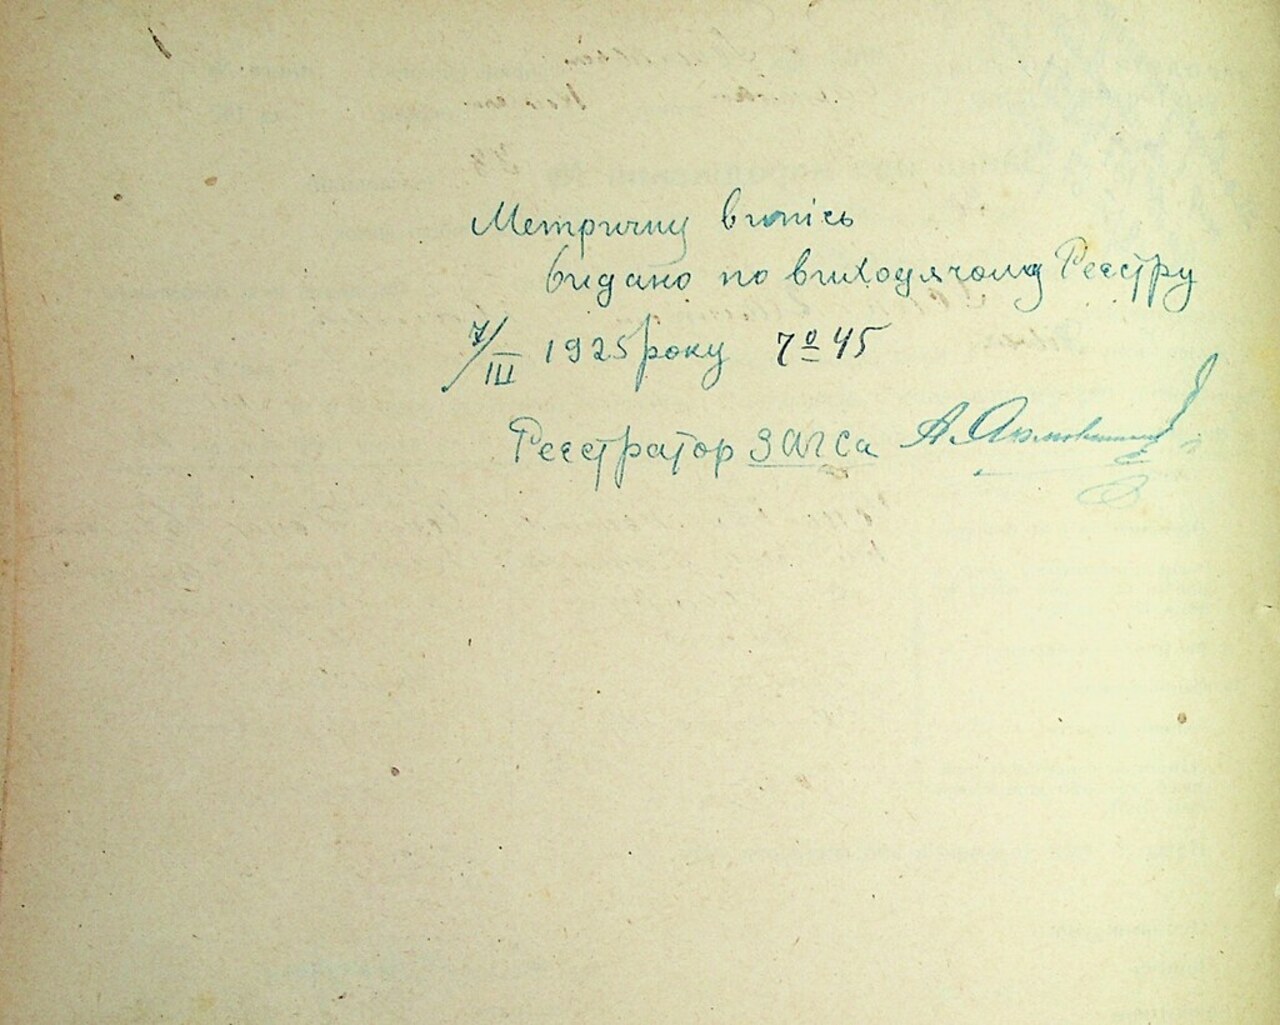 Метричну випісь
видано по виходячому Реєстру
7/III 1925 року № 45
Реєстратор ЗАГСа А.